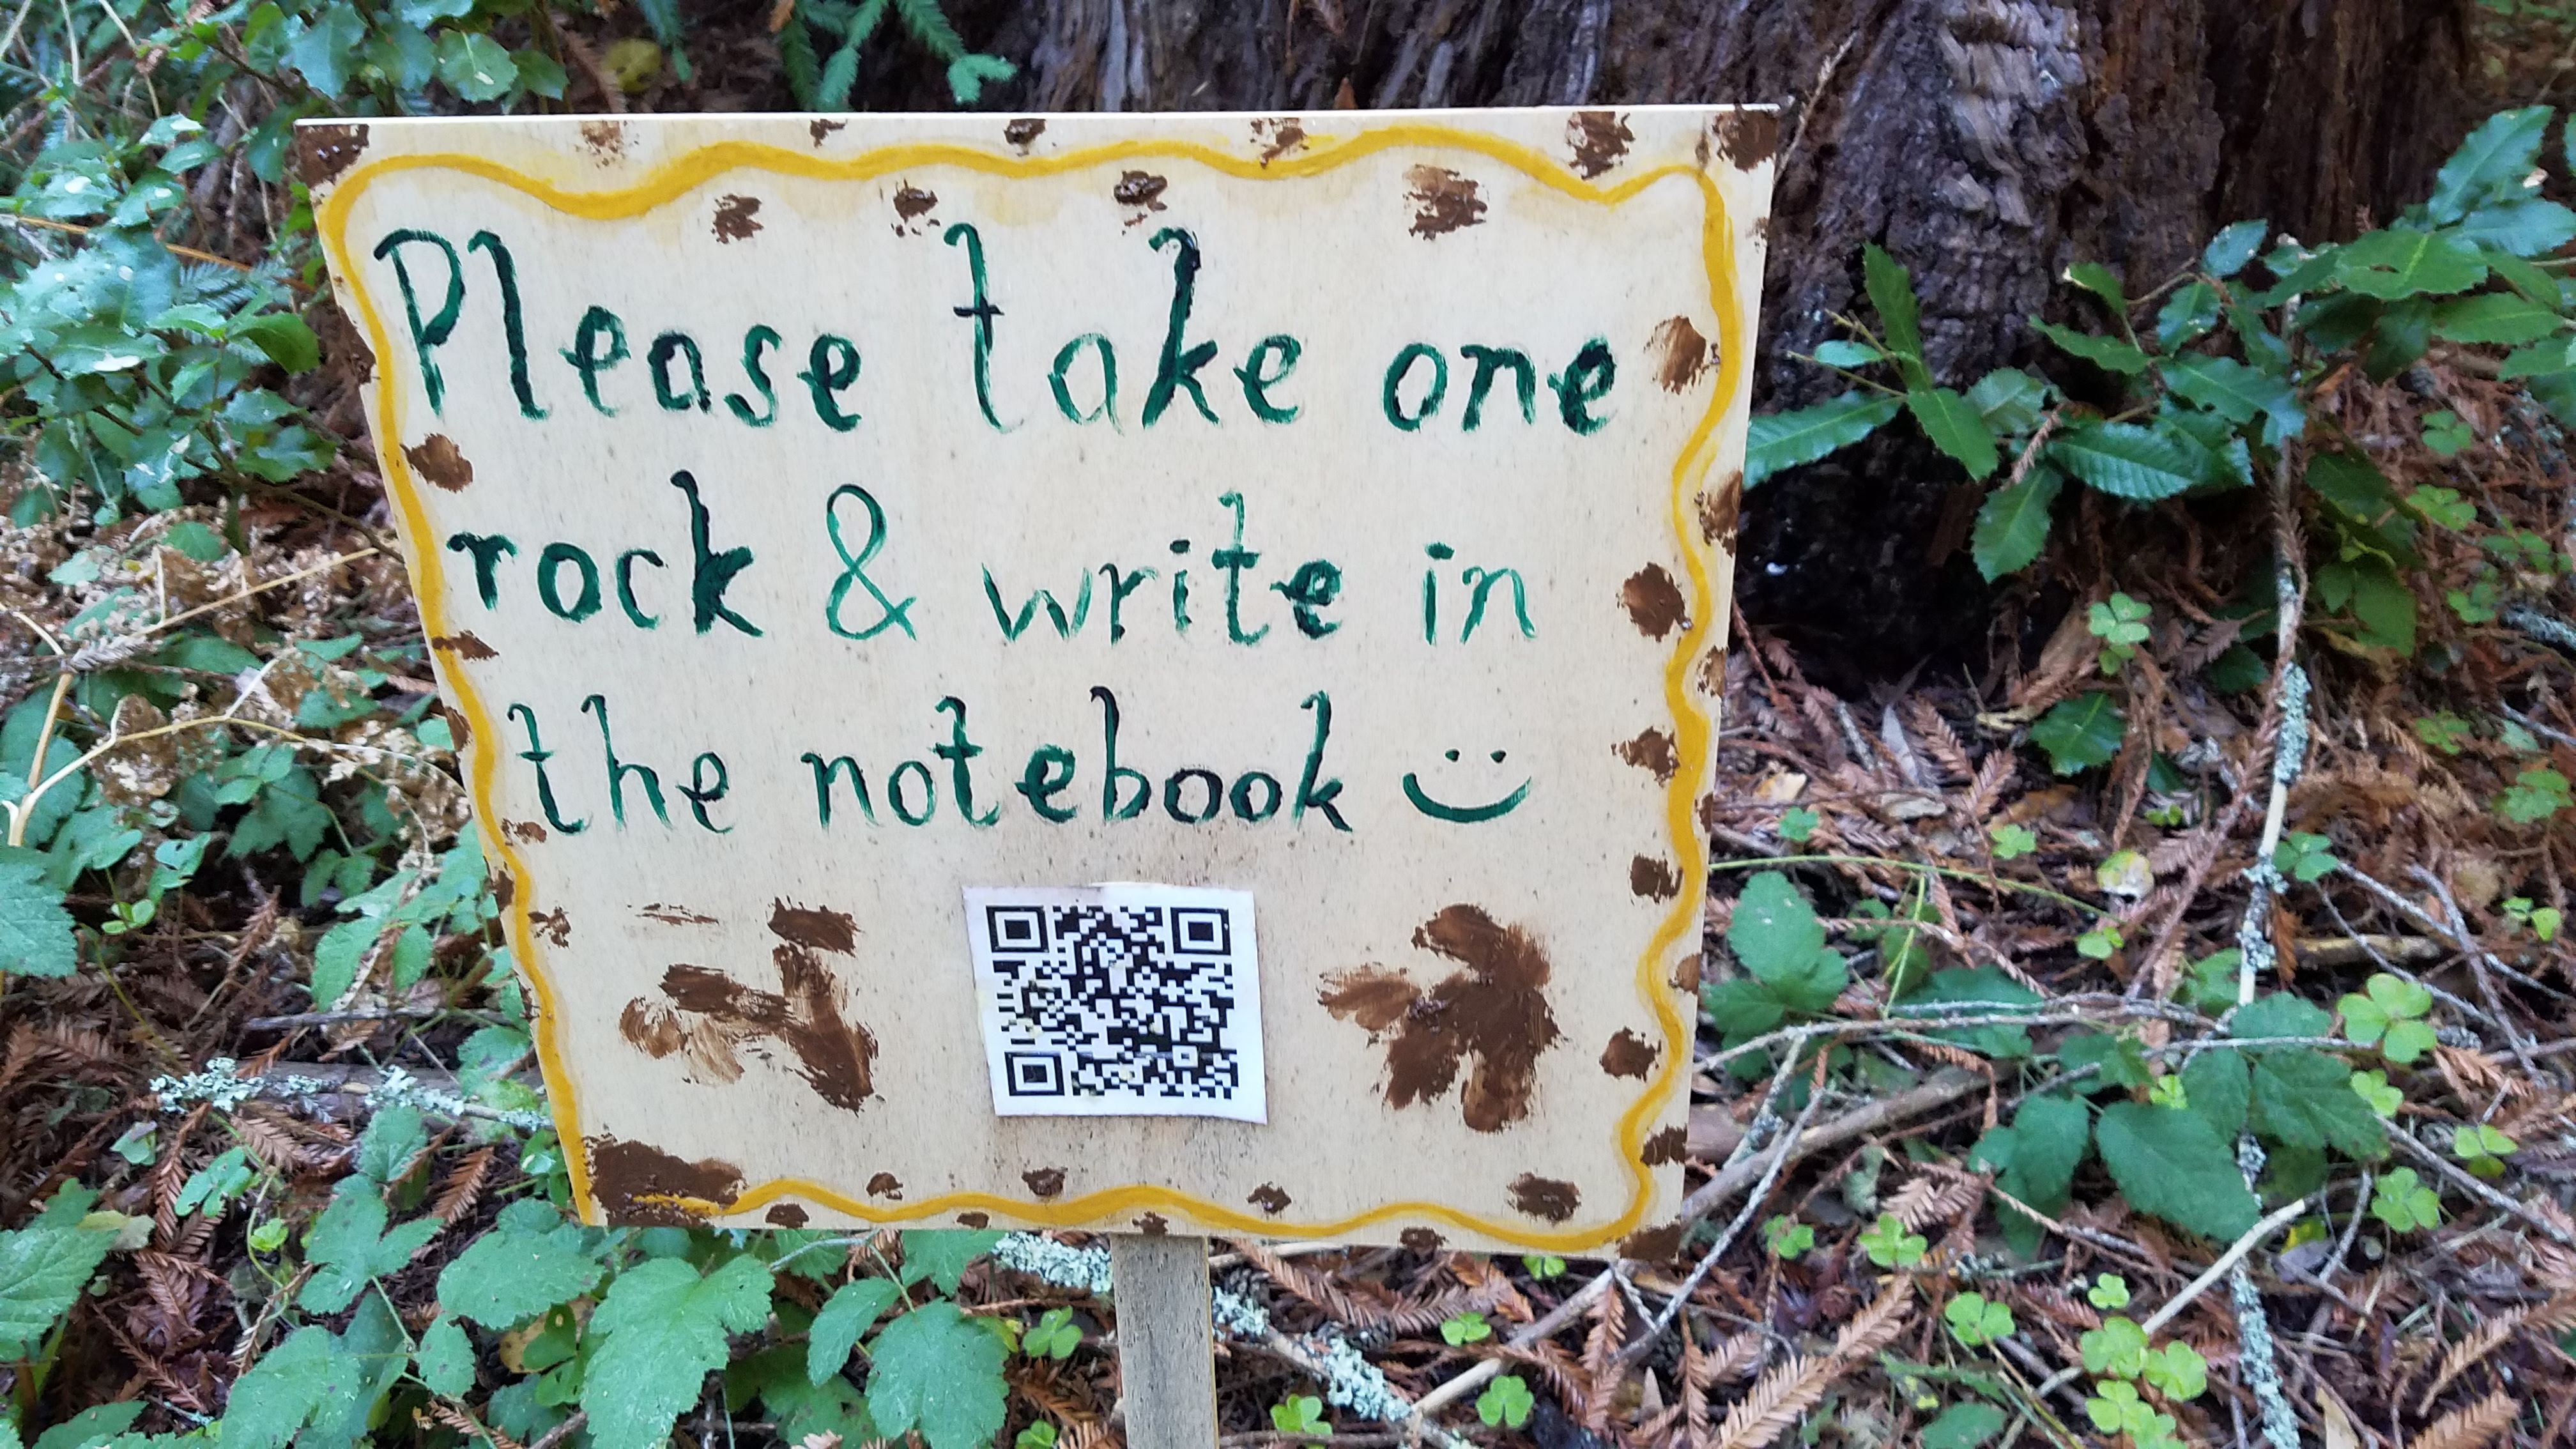 Please take one
rock & write in
the notebook